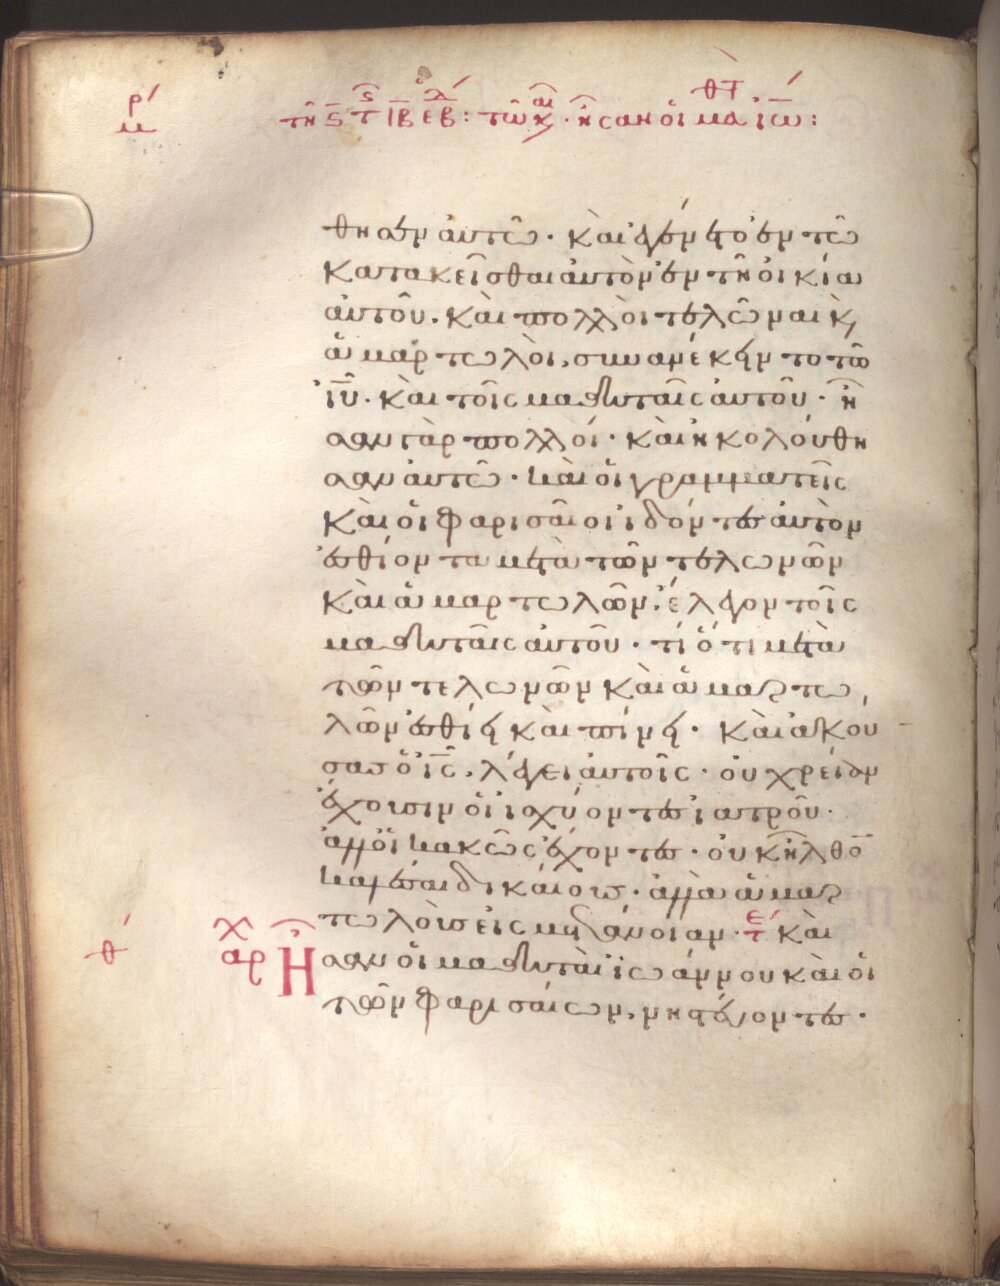 ρ´
μ
τῆ ϛ τ ιβ εβ: τῶ κ · ἦσαν οἱ μα ιω:
θησεν αὐτῶ · καὶ ἐγένετο ἐν τῶ
κατακεῖσθαι αὐτὸν ἐν τῆ οἰκία
αὐτοῦ. καὶ πολλοὶ τελῶναι κ,
ἁμαρτωλὸι, συνανέκειντο τῶ
ιυ. καὶ τοῖς μαθηταῖς αὐτοῦ · ἦ
σαν γὰρ πολλοί · καὶ ἠκολούθη
σαν αὐτῶ · καὶ οἱ γραμματεῖς
καὶ οἱ φαρισαῖοι ἰδόντες αὐτὸν
ἐσθίοντα μετὰ τῶν τελωνῶν
καὶ ἁμαρτωλῶν. ἔλεγον τοῖς
μαθηταῖς αὐτοῦ · τί ὅτι μετὰ
τῶν τελωνῶν καὶ ἁμαρτω
λῶν ἐσθίει καὶ πίνει · καὶ ἀκού
σας ὁ ις, λέγει αὐτοῖς · οὐ χρείαν
ἔχουσιν οἱ ἰσχύοντες ἰατροῦ ·
ἀλλ' οἱ κακῶς ἔχοντες · οὐκ ἦλθο
καλέσαι δικαίους · ἀλλὰ ἁμαρ
τωλοὺς εἰς μετάνοιαν · τε καὶ
θ´ αρχ Ἦσαν οἱ μαθηταὶ ἰωάννου καὶ οἱ
τῶν φαρισαίων, νηστεύοντες ·